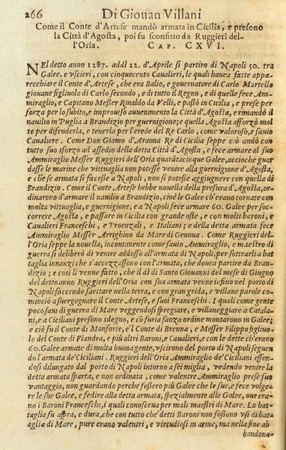 266 Di Giovan Villani
Come il Conte d'Artese mandò armata in Cicilia, e presono
la Città d'Agosta, poi fu sconfitto da Ruggieri del-
l'Oria. CAP. CXVI.
NEl detto anno 1287. addì 22. d'Aprile si partiro di Napoli 50. tra
Galee, e uscieri, con cinquecento Cavalieri, le quali havea fatte appa-
recchiare il Conte d'Artese, che era Balio, e governatore di Carlo Martello
giovane figliuolo di Carlo secondo, e di tutto il Regno, e di quelle fece Am-
miraglio, e Capitano Messer Rinaldo da Velli, e passò in Cicilia, e prese per
forza per lo subito, e improvviso avvenimento la Città d'Agosta, e rimandò il
navilio in Puglia a Brandizio per guernigione; e quella Agosta afforzò mol-
to per difenderla, e tenerla per l'erede del Re Carlo, come valoroso, e savio
Cavaliere. Come Don Giamo d'Araona Re di Cicilia seppe ciò andò con
tutto suo sforzo ad assedio della detta Città d'Agosta, e fece armare al suo
Ammiraglio Messer Ruggieri dell'Oria quarantacinque Galee, acciochè guar
dasse le marine che vittuaglia non potesse venire alla guernigione d'Agosta, e
che se armata si facesse a Napoli, non si potesse aggiungere con quella di
Brandizio. Come il Conte d'Artese hebbe novella della presura d'Agosta, or-
dinarono il'armare il navilio a Brandizio, che le Galee ch'erano tornate con
molta vittuaglia, e guernigione, e a Napoli fece armare 60. Galee per soc-
correre Agosta, e passare in Cicilia con grande oste, e con molti baroni, e
Cavalieri Franceschi, e Provenzali, e Italiani; e della detta armata fece
Ammiraglio Messer Arrighino da Mari di Genova. Come Ruggieri del-
l'Oria seppe la novella, incontanente come savio Ammiraglio, e maestro di
guerra si deliberò di venire addosso all'armata di Napoli, per sottrarli a bat-
taglia innanzi che s'accozzassono con l'armata, che dovea partire da Bran-
dizio; e così li venne fatto, che il dì di Santo Giovanni del mese di Giugno
del detto anno Ruggieri dell'Oria con sua armata venne infino nel porto di
Napoli faccendo saettare nella terra, e con gran grida, e villane parole co-
minciò a svergognare il Conte d'Artese, e suoi Franceschi. I quali come gente
poco savia di guerra di Mare veggendosi spregiare, e villaneggiare a Catala-
ni, e a Ciciliani presono sdegno, e a furia sanza ordine montarono su Galee;
e ciò fu il Conte di Monforte, e'l Conte di Brenna, e Messer Filippo figliuo-
lo del Conte di Fiandra, e più altri Baroni, e Cavalieri, e con le dette ch'erano
60. Galee armate di molta buona gente, uscirono del porto di Napoli seguen-
do l'armata de' Ciciliani. Ruggieri dell'Oria Ammiraglio de' Ciciliani essen-
dosi dilungato dal porto di Napoli intorno a sei miglia, vedendo venire la
detta armata sparta, e non ordinata, come valentre Ammiraglio prese suo
vantaggio, non guardando perche fossero più Galee che le sue, e fece volge-
re le sue Galee, e fedire alla detta armata, spezialmente alle Galee, ove era-
no i Baroni Franceschi, i quali conoscea per mali maestri di Mare. La bat-
taglia fu aspra, e dura, che con tutto che detti Baroni non fossono usi di bat-
taglia di Mare, pure erano valentri, e virtudiosi in arme, ma nella fine ab
bandona-